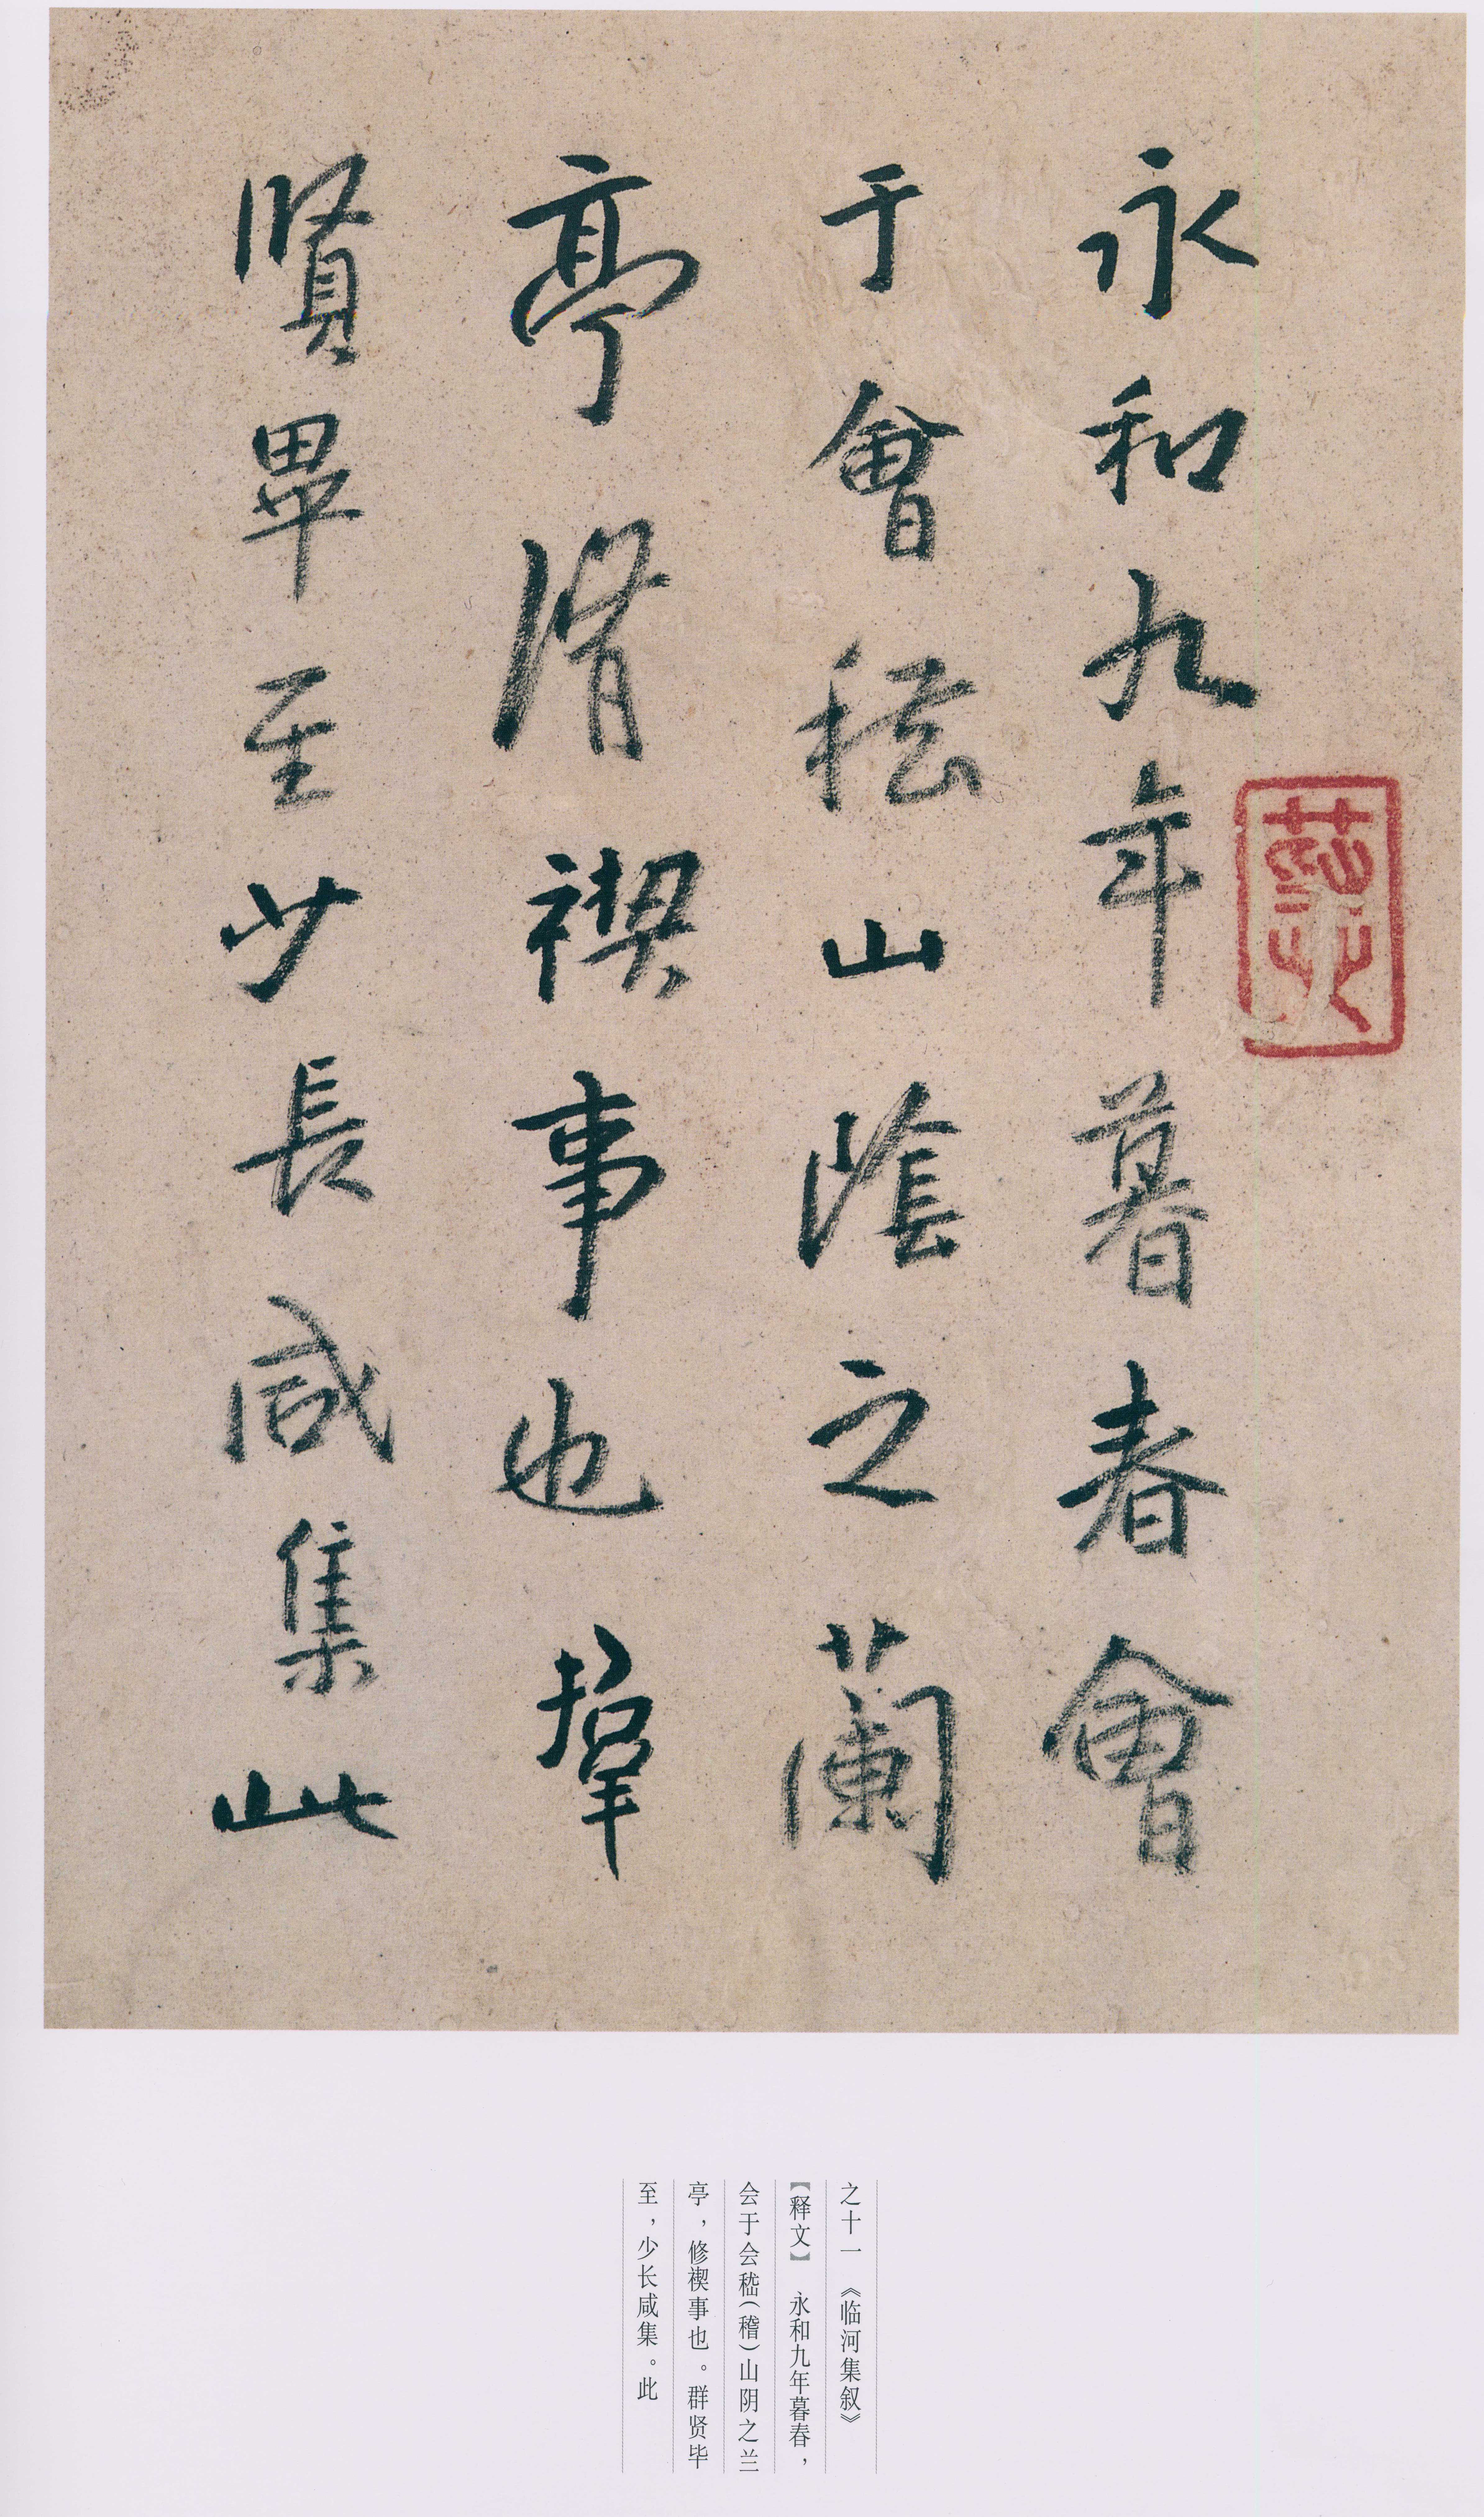 永和九年暮春會
于會稽山陰之蘭
亭脩禊事也羣
賢畢至少長咸集此
之十一 《临河集叙》
【释文】 永和九年暮春，
会于会嵇(稽)山阴之兰
亭，修禊事也。群贤毕
至，少长咸集。此